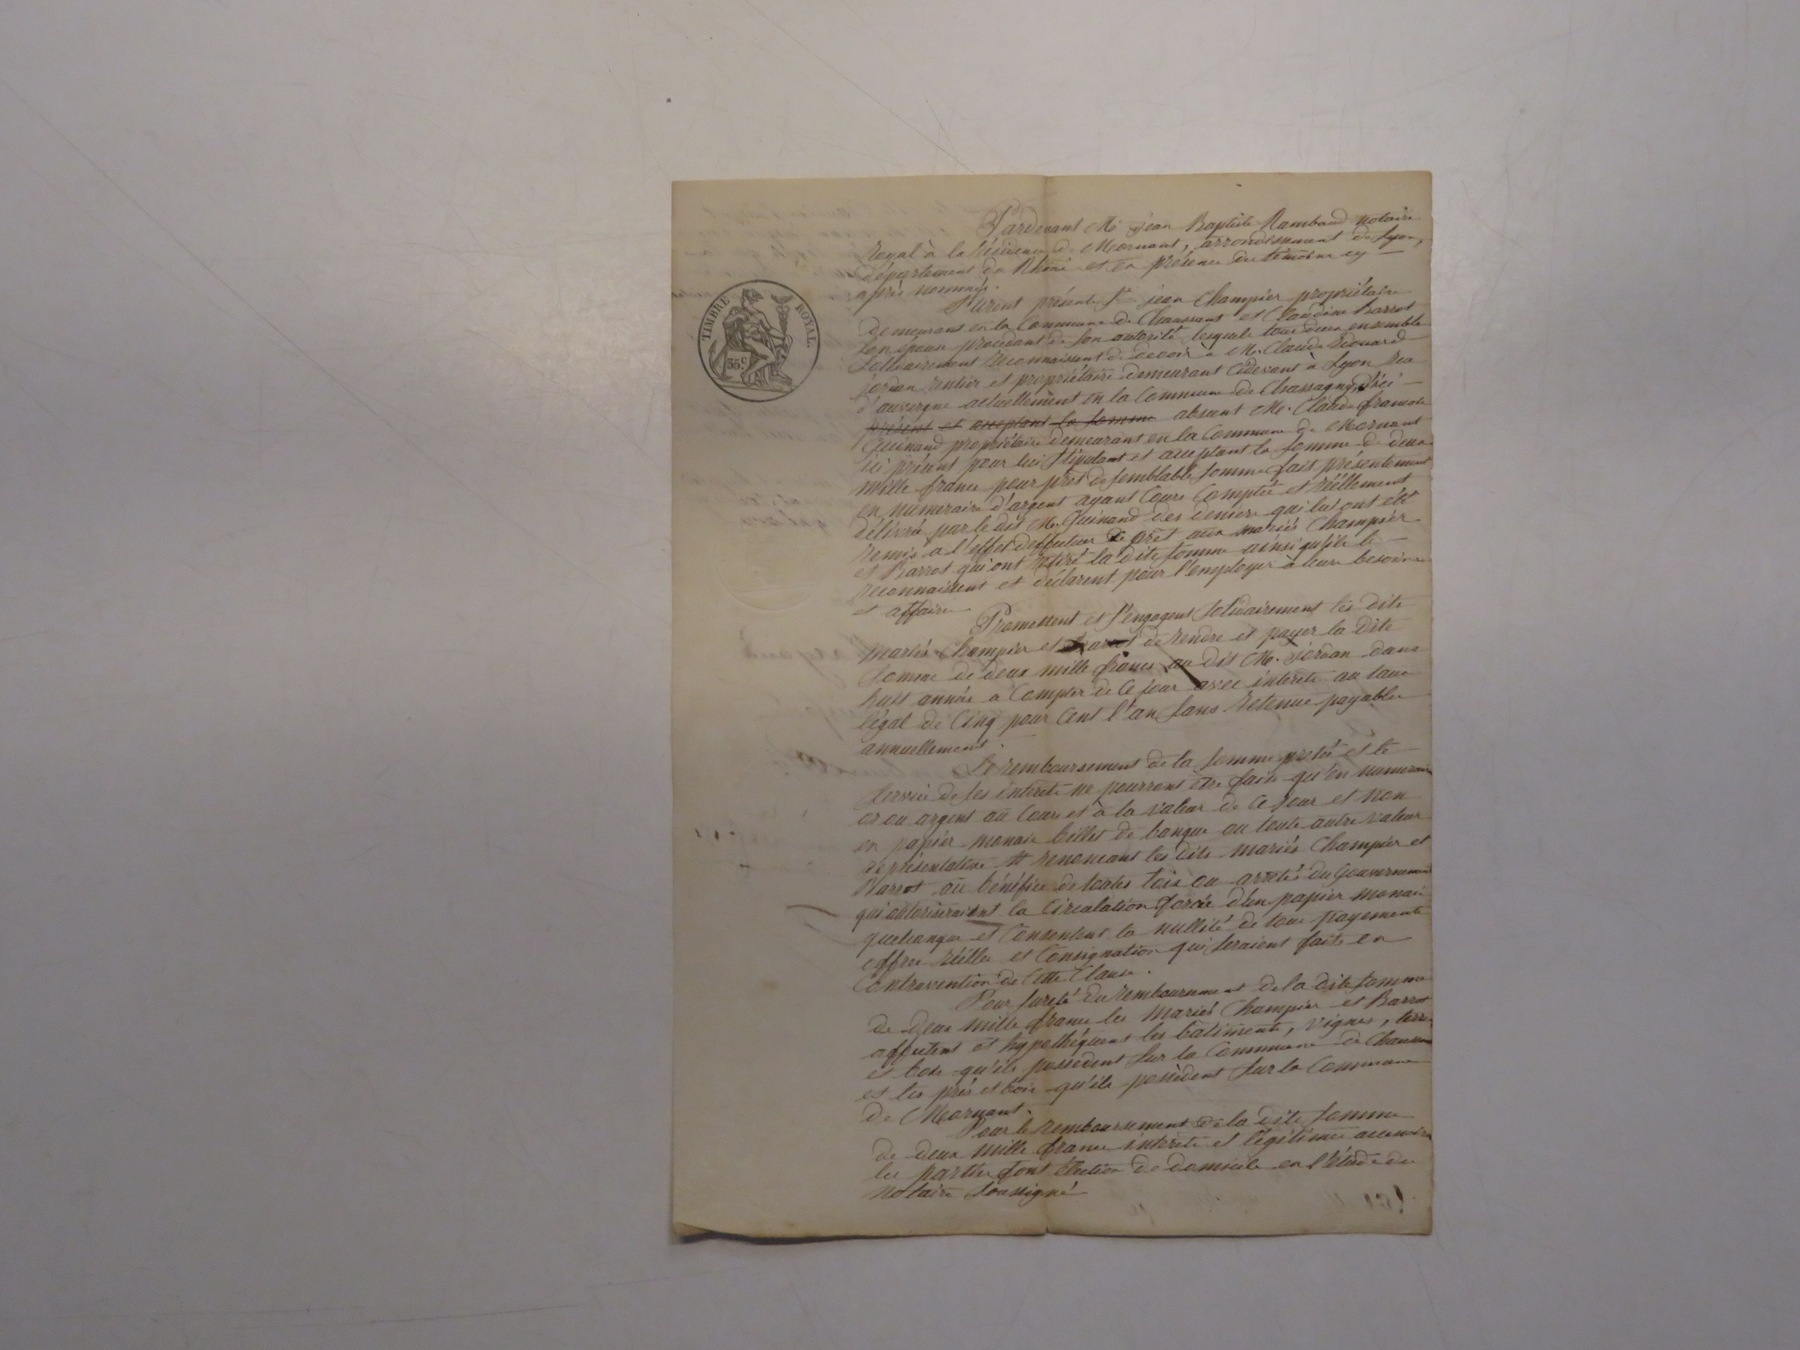 TIMBRE ROYAL.
35 c
Pardevant Me jean Baptiste Rambaud notaire
Royal à la Résidence de Mornant, arrondissement de Lyon,
Département du Rhône et en présence des témoins cy
après nommés.
Furent présents Sr jean Champier propriétaire
demeurant en la Commune de Chaussant et Claudine Barrot
son épouse procédant de son autorité lesquels tous deux ensemble
solidairement reconnaissent devoir à M. Claude Edouard
jordan rentier et propriétaire demeurant cidevant à Lyon rue
d'auvergne actuellement en la Commune de Chassagny, d'ici
présent et acceptant la somme absent M. Claude françois
Guinand propriétaire demeurant en la Commune de Mornant
ici présent pour lui stipulant et acceptant la somme de deux
mille francs pour prêt de semblable somme fait présentement
en numéraire d'argent ayant Cours Compté et réellement
délivré par le dit M. Guinand des deniers qui lui ont été
remis à l'effet d'effectuer le prêt aux mariés Champier
et Barrot qui ont retiré la dite somme ainsi qu'ils le
reconnaissent et déclarent pour l'employer à leurs besoins
et affaires
Promettent et s'engagent solidairement les dits
mariés Champier et Barrot de rendre et payer la dite
somme de deux mille francs au dit M. jordan dans
huit années à Compter de Ce jour avec intérêts au taux
légal de Cinq pour Cent l'an sans retenue payables
annuellement.
Le remboursement de la somme prêtée et le
service de ses intérêts ne pourront être faits qu'en numéraire
or ou argent au Cours et à la valeur de Ce jour et non
en papier monaie billets de banque ou toute autre valeur
représentative renonçant les dits mariés Champier et
Barrot au bénéfice de toutes lois ou arrêtés du Gouvernement
qui autoriseraient la Circulation forcée d'un papier monaie
quelconque et Consentent la nullité de tous payements
offres réelles et Consignation qui seraient faits en
Contravention de Cette Clause.
Pour sureté du remboursement de la dite somme
de deux mille francs les mariés Champier et Barrot
affectent et hypothéquent les bâtiments, vignes, terres
et bois qu'ils possèdent sur la Commune de Chaussant
et les prés et bois qu'ils possèdent sur la Commune
de Mornant.
Pour le remboursement de la dite somme
de deux mille francs intérêts et légitimes accessoires
les parties font élection de domicile en l'étude du
notaire soussigné